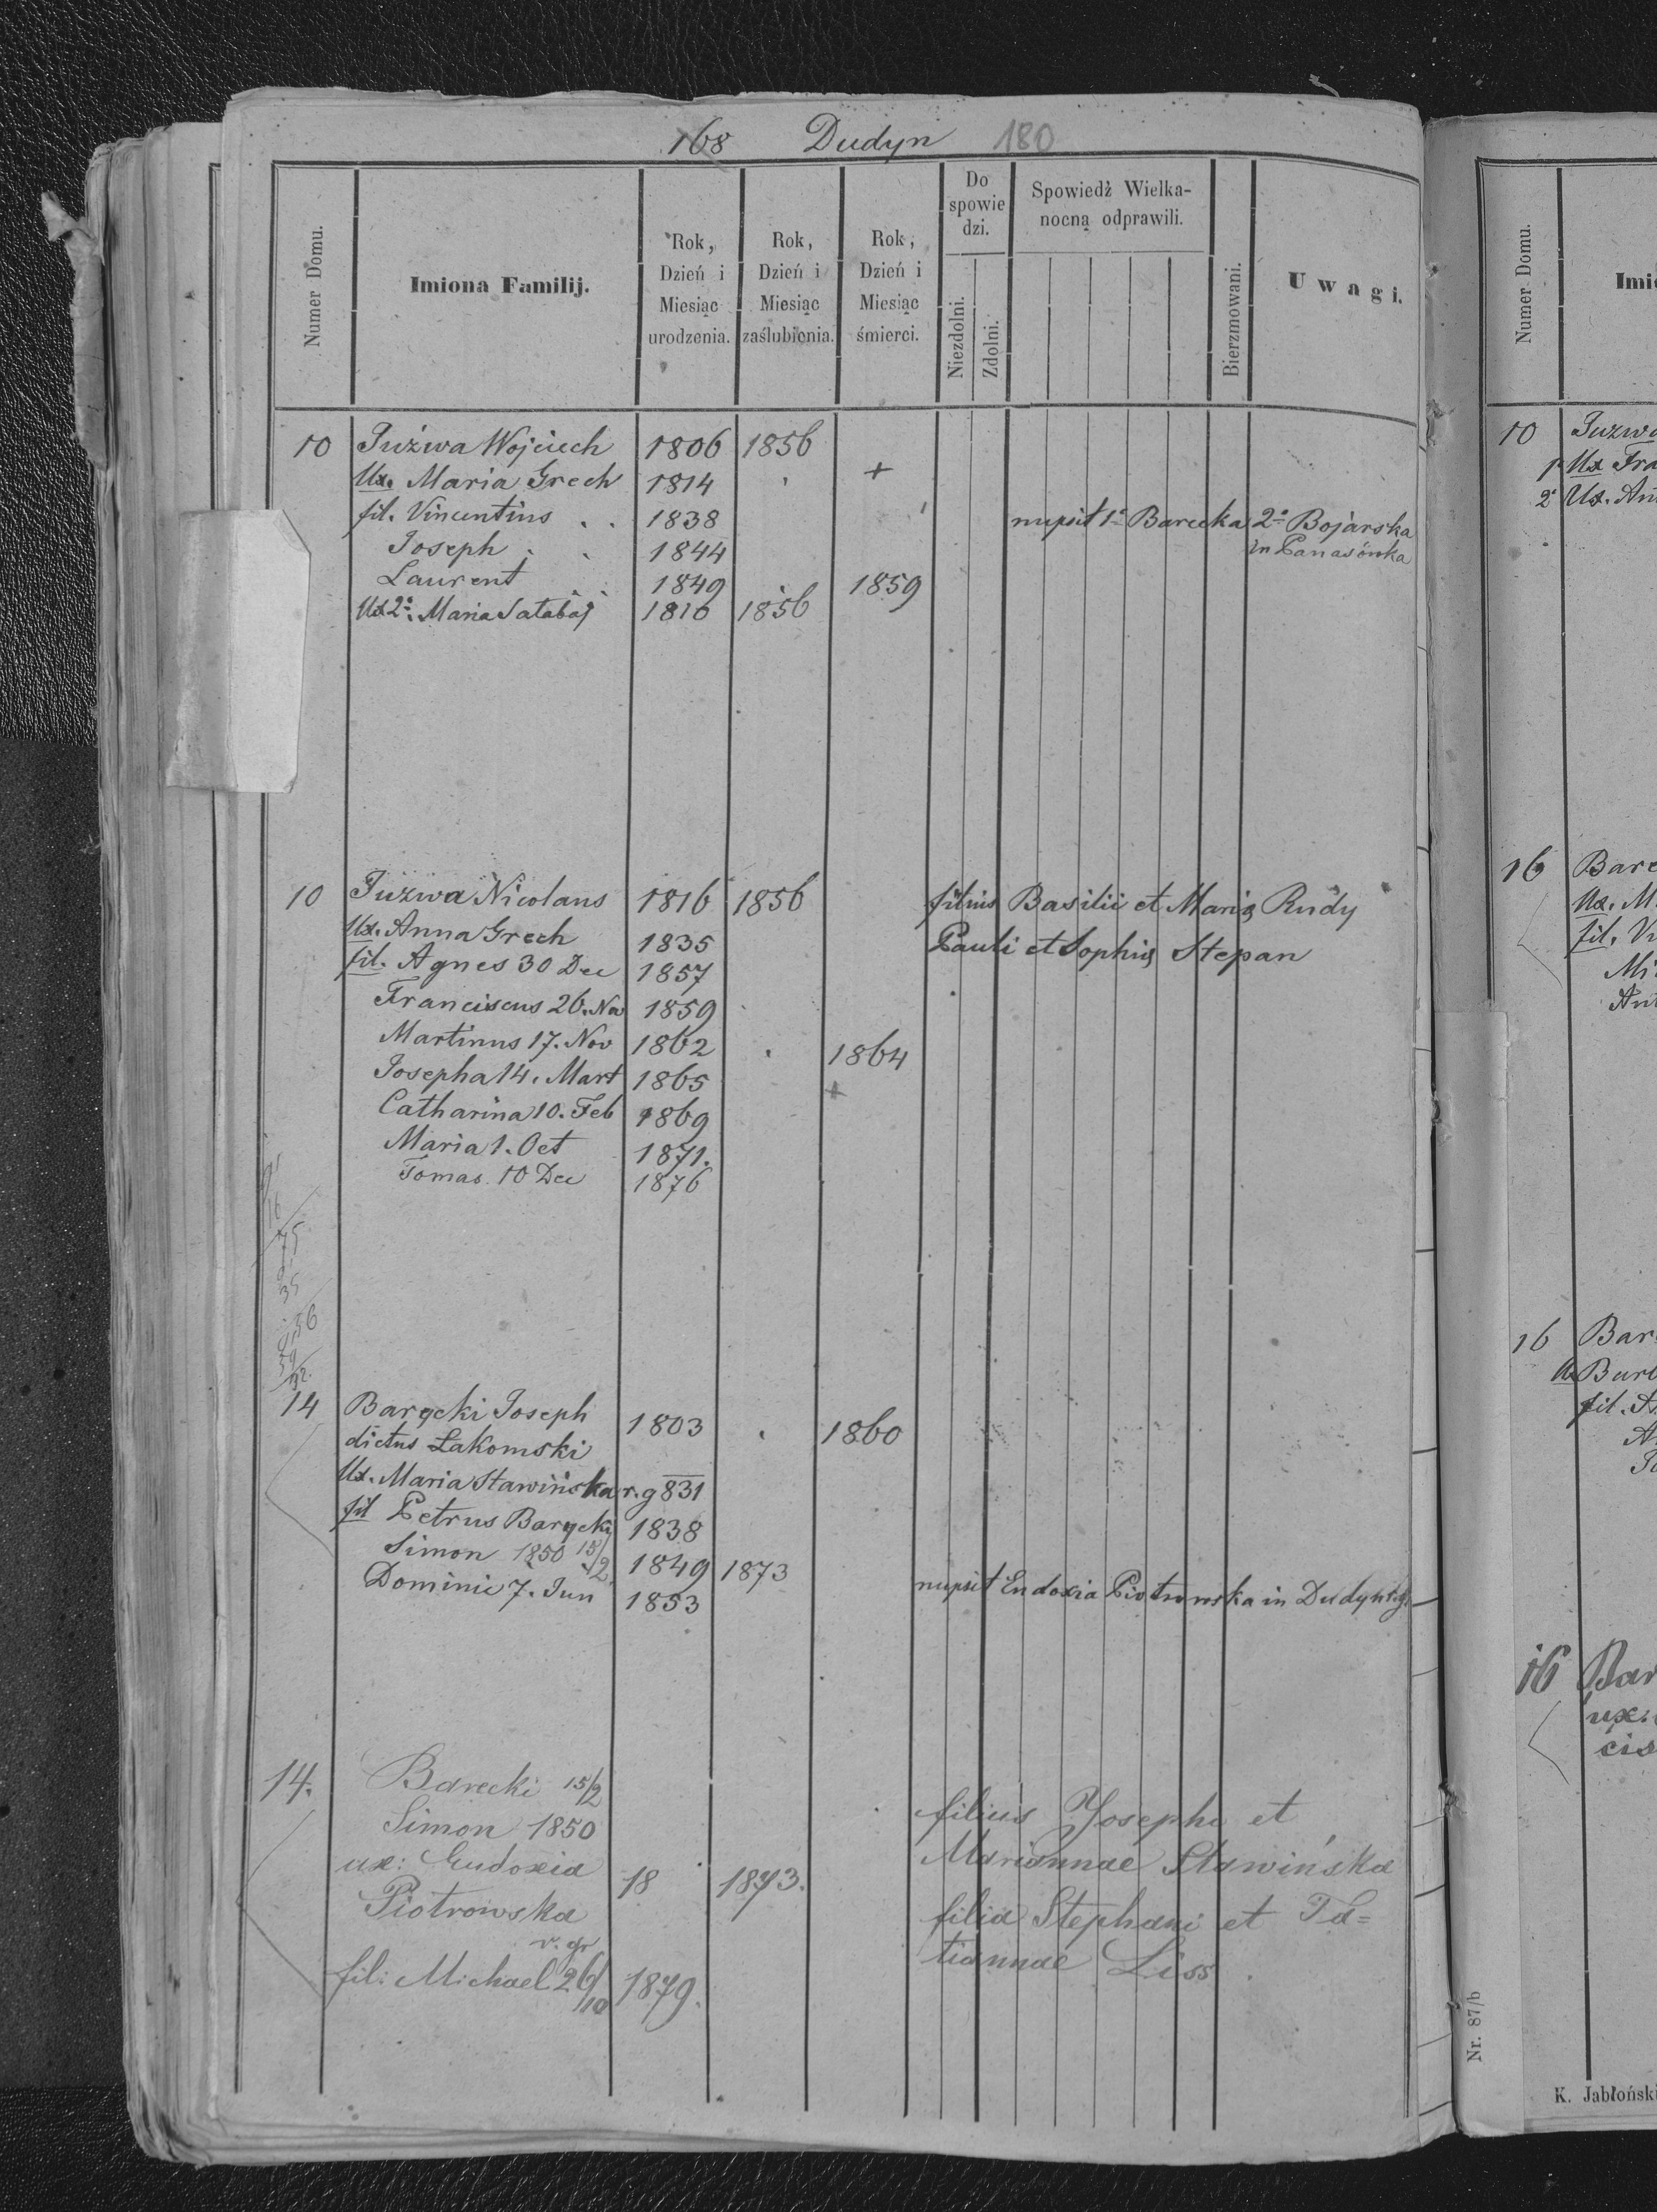 168 Dudyn 180
Numer Domu.
Imiona Familij.
Rok, Dzień i Miesiąc urodzenia.
Rok, Dzień i Miesiąc zaślubienia.
Rok, Dzień i Miesiąc śmierci.
Do spowie dzi.
Niezdolni.
Zdolni.
Spowiedź Wielka-
nocną odprawili.
Bierzmowani.
Uwagi.
10 Puźwa Wojciech 1806 1856
Ux. Maria Grech 1814 +
fil. Vincentius . . 1838 nupsit 1º Barecka 2º Bojarska
Joseph . . 1844 in Panasówka
Laurent 1849 1859
Ux 2º. Maria Satabaj 1810 1856
10 Puzwa Nicolaus 1816 1856 filius Basilii et Maria Rudy
Ux. Anna Grech 1835 Pauli et Sophia Stepan
fil. Agnes 30 Dec 1857
Franciscus 26. Nov 1859
Martinus 17. Nov 1862 1864
Josepha 14. Mart 1865 +
Catharina 10. Feb 1869
Maria 1. Oct 1871.
Tomas 10 Dec 1876
14 Barycki Joseph
dictus Łakomski 1803 1860
Ux. Maria Stawińska r. g 831
fil Petrus Barycki 1838
Simon 1850 15/2 1849 1873 nupsit Eudoxia Piotrowska in Dudyn r.g.
Dominic 7. Jun 1853
14. Barecki 15/2
Simon 1850 filius Josephi et
Mariannae Stawińska
ux: Eudoxia 18 1873.
Piotrowska filia Stephani et Ta=
tiannae Liss
r. gr
fil: Michael 26/10 1879.
Numer Domu.
10
1º Ux Fra
2º Ux.
16 Bare
Ux. M.
fil. V
16 Bar
fil. A
16 Bar
ux.
Nr. 87/b
K. Jabłońsk